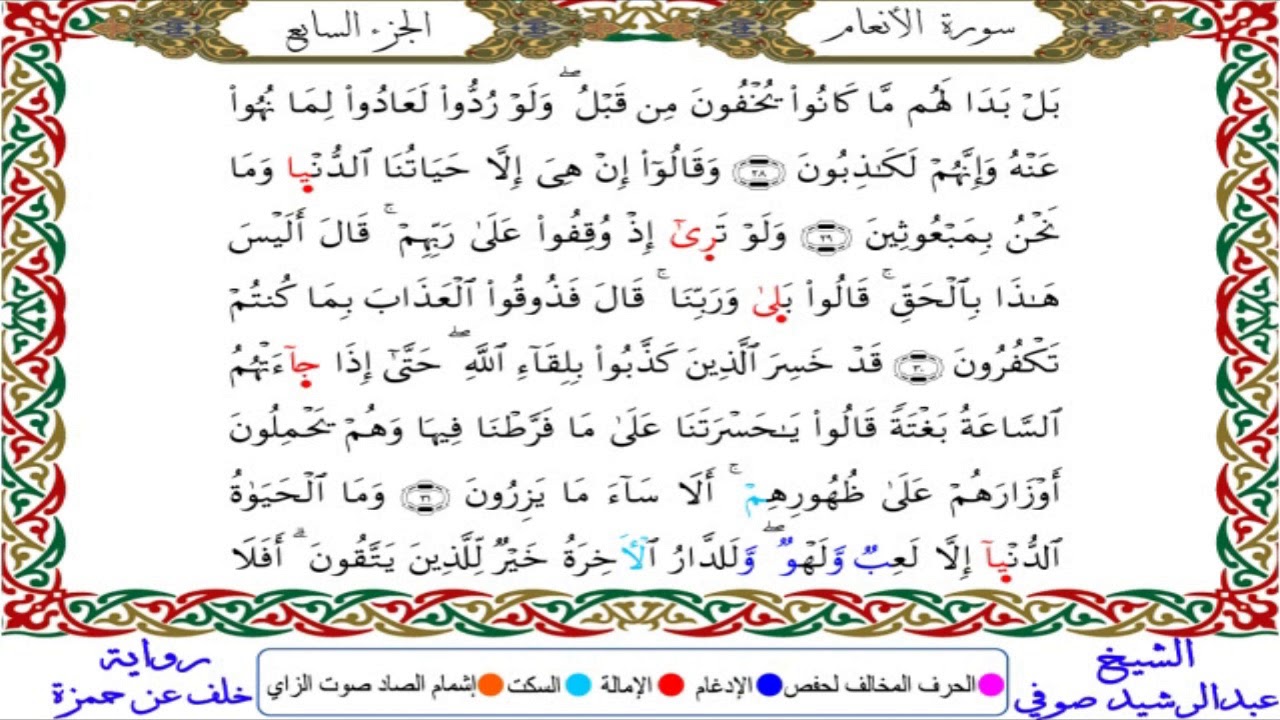 سورة الأنعام
الجزء السابع
بَلْ بَدَا لَهُم مَّا كَانُوا۟ يُخْفُونَ مِن قَبْلُ ۖ وَلَوْ رُدُّوا۟ لَعَادُوا۟ لِمَا نُهُوا۟
عَنْهُ وَإِنَّهُمْ لَكَـٰذِبُونَ ٢٨ وَقَالُوٓا۟ إِنْ هِىَ إِلَّا حَيَاتُنَا ٱلدُّنْيا وَمَا
نَحْنُ بِمَبْعُوثِينَ ٢٩ وَلَوْ تَرىٰٓ إِذْ وُقِفُوا۟ عَلَىٰ رَبِّهِمْ ۚ قَالَ أَلَيْسَ
هَـٰذَا بِٱلْحَقِّ ۚ قَالُوا۟ بَلىٰ وَرَبِّنَا ۚ قَالَ فَذُوقُوا۟ ٱلْعَذَابَ بِمَا كُنتُمْ
تَكْفُرُونَ ٣٠ قَدْ خَسِرَ ٱلَّذِينَ كَذَّبُوا۟ بِلِقَآءِ ٱللَّهِ ۖ حَتَّىٰٓ إِذَا جآءَتْهُمُ
ٱلسَّاعَةُ بَغْتَةً قَالُوا۟ يَـٰحَسْرَتَنَا عَلَىٰ مَا فَرَّطْنَا فِيهَا وَهُمْ يَحْمِلُونَ
أَوْزَارَهُمْ عَلَىٰ ظُهُورِهِمْ ۚ أَلَا سَآءَ مَا يَزِرُونَ ٣١ وَمَا ٱلْحَيَوٰةُ
ٱلدُّنْيآ إِلَّا لَعِبٌ وَّلَهْوٌ ۖ وَّلَلدَّارُ ٱلْأَخِرَةُ خَيْرٌ لِّلَّذِينَ يَتَّقُونَ ۗ أَفَلَا
الشيخ
عبدالرشيد صوفي
الحرف المخالف لحفص الإدغام الإمالة السكت إشمام الصاد صوت الزاي
رواية
خلف عن حمزة